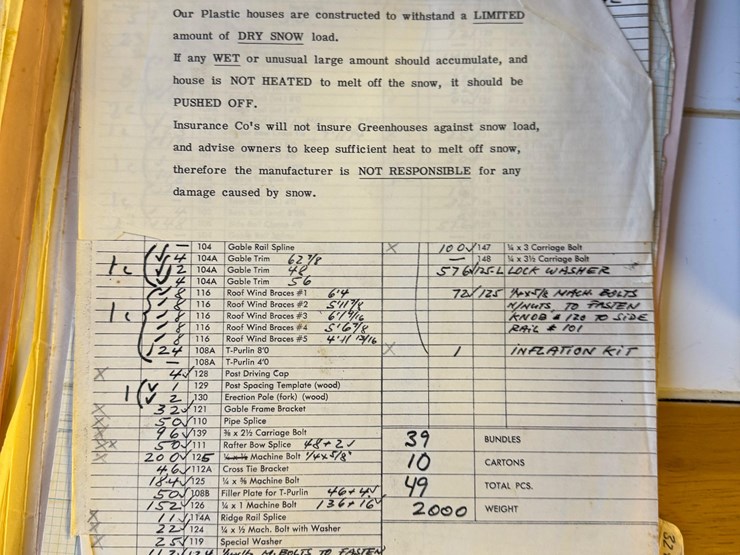 Our Plastic houses are constructed to withstand a LIMITED
amount of DRY SNOW load.
If any WET or unusual large amount should accumulate, and
house is NOT HEATED to melt off the snow, it should be
PUSHED OFF.
Insurance Co's will not insure Greenhouses against snow load,
and advise owners to keep sufficient heat to melt off snow,
therefore the manufacturer is NOT RESPONSIBLE for any
damage caused by snow.
— 104 Gable Rail Spline
4 104A Gable Trim 62 7/8
2 104A Gable Trim 48
4 104A Gable Trim 56
8 116 Roof Wind Braces #1 6'4
8 116 Roof Wind Braces #2 5'11 7/8
8 116 Roof Wind Braces #3
8 116 Roof Wind Braces #4 5'6 7/8
8 116 Roof Wind Braces #5 4'11 13/16
124 108A T-Purlin 8'0
— 108A T-Purlin 4'0
4 128 Post Driving Cap
1 129 Post Spacing Template (wood)
2 130 Erection Pole (fork) (wood)
32 121 Gable Frame Bracket
50 110 Pipe Spline
96 139 3/8 x 2½ Carriage Bolt
50 111 Rafter Bow Splice 48+2
200 125 Machine Bolt 1/4x5/8"
46 112A Cross Tie Bracket
184 125 ¼ x 5/8 Machine Bolt
50 108B Filler Plate for T-Purlin 46+4
152 126 ¼ x 1 Machine Bolt 136+16
11 114A Ridge Rail Spline
22 124 ¼ x ½ Mach. Bolt with Washer
25 119 Special Washer
112 124 M. BOLTS TO FASTEN
X 100 147 ¼ x 3 Carriage Bolt
— 148 ¼ x 3½ Carriage Bolt
576 125-L LOCK WASHER
72 125 1/4x5/8 MACH BOLTS
W/NUTS TO FASTEN
KNOB # 120 TO SIDE
RAIL # 101
X 1 INFLATION KIT
39 BUNDLES
10 CARTONS
49 TOTAL PCS.
2000 WEIGHT